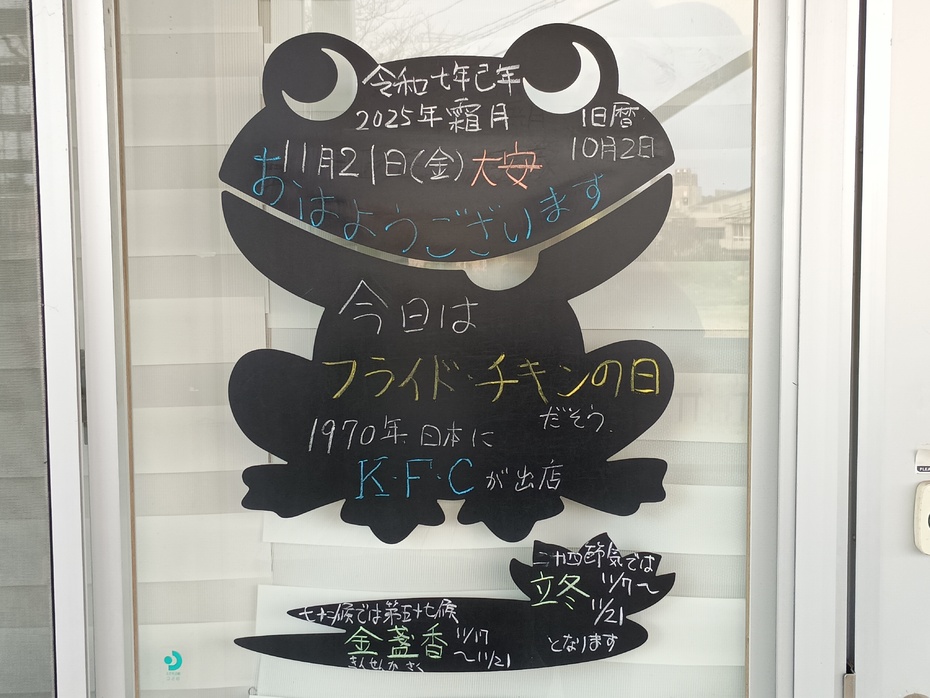 令和七年己年
2025年霜月
旧暦
10月2日
11月21日(金)大安
おはようございます
今日は
フライド・チキンの日
だそう.
1970年日本に
K・F・Cが出店
二十四節気では
立冬 11/7〜
11/21
となります
七十二候では第五十七候
金盞香 11/17
〜11/21
きんせんか さく